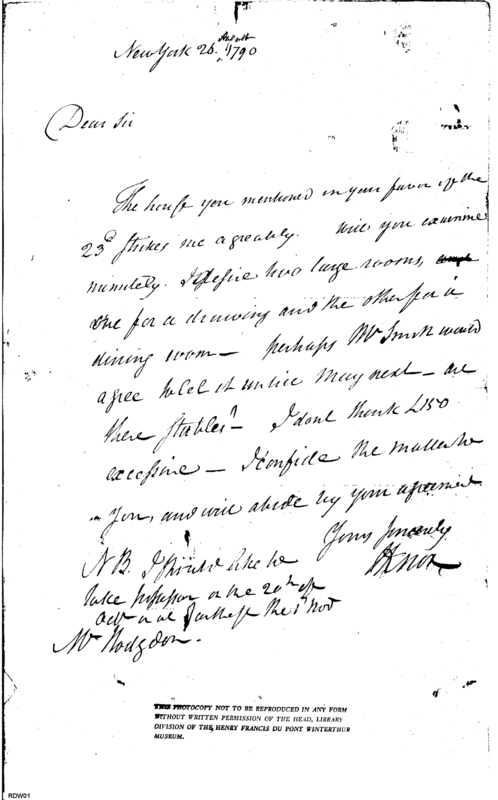 New York 26. August 1790
Dear Sir
The house you mentioned in your favor of the
23d strikes me agreably. Will you examine
minutely. I desire two large rooms,
one for a drawing and the other for a
dining room — perhaps Mr Smith would
agree to let it untill May next — are
there stables? — I dont think £150
excessive — I confide the matter to
you, and will abide by your agreement
Yours sincerely
HKnox
NB. I should like to
take possession on the 20th of
Octr or at farthest the 1st Nov
Mr Hodgdon.
THIS PHOTOCOPY NOT TO BE REPRODUCED IN ANY FORM
WITHOUT WRITTEN PERMISSION OF THE HEAD, LIBRARY
DIVISION OF THE HENRY FRANCIS DU PONT WINTERTHUR
MUSEUM.
RDW01